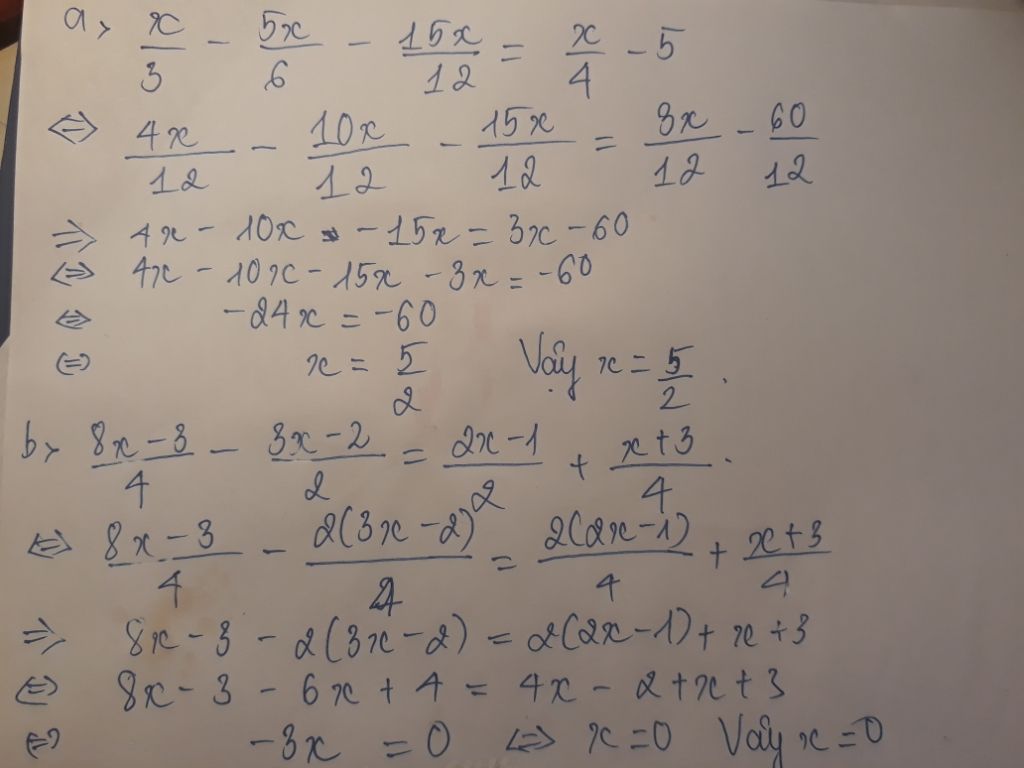 a, x/3 - 5x/6 - 15x/12 = x/4 - 5
⇔ 4x/12 - 10x/12 - 15x/12 = 3x/12 - 60/12
⇒ 4x - 10x - 15x = 3x - 60
⇔ 4x - 10x - 15x - 3x = -60
⇔ -24x = -60
⇔ x = 5/2 Vậy x = 5/2 .
b, (8x - 3)/4 - (3x - 2)/2 = (2x - 1)/2 + (x + 3)/4 .
⇔ (8x - 3)/4 - 2(3x - 2)/4 = 2(2x - 1)/4 + (x + 3)/4
⇒ 8x - 3 - 2(3x - 2) = 2(2x - 1) + x + 3
⇔ 8x - 3 - 6x + 4 = 4x - 2 + x + 3
⇔ -3x = 0 ⇔ x = 0 Vậy x = 0